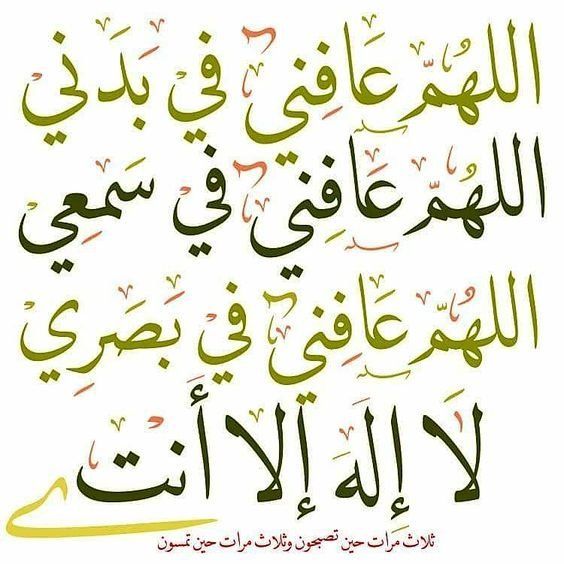 اللهُمّ عَافِنِي فِي بَدَنِي
اللهُمّ عَافِنِي فِي سَمعِي
اللهُمّ عَافِنِي فِي بَصَرِي
لَا إِلهَ إلا أَنت
ثلاث مرات حين تصبحون وثلاث مرات حين تمسون